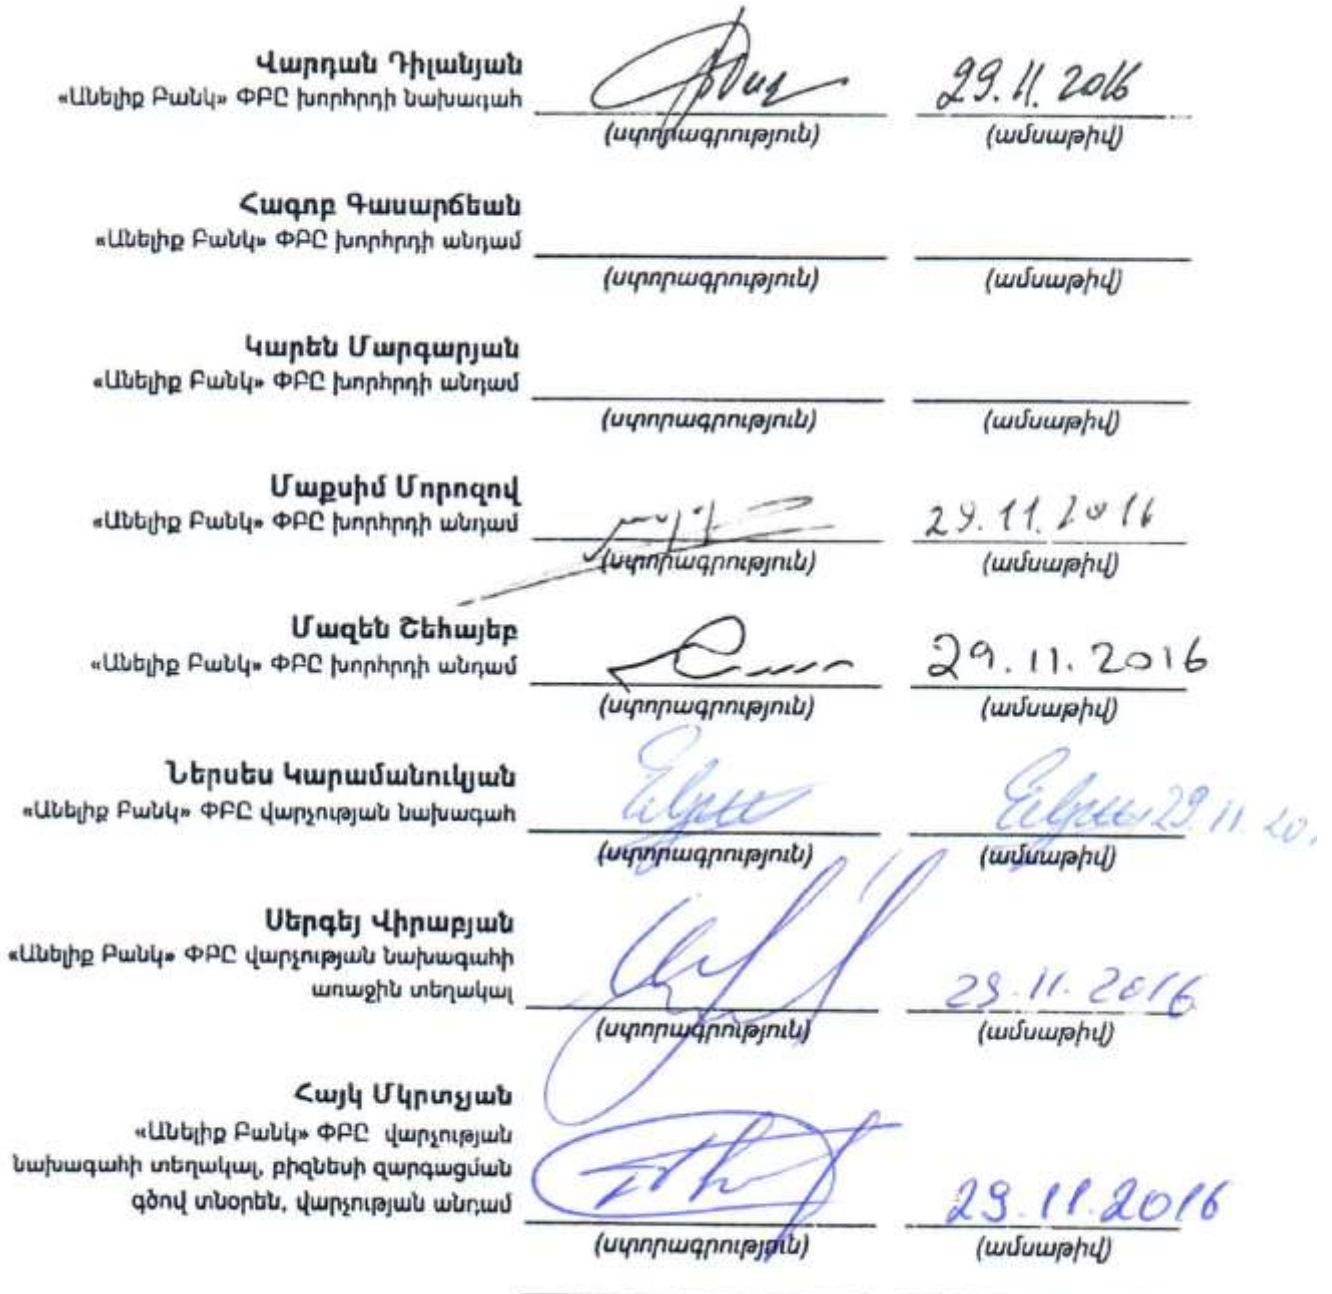 Վարդան Դիլանյան
«Անելիք Բանկ» ՓԲԸ խորհրդի նախագահ
29.11.2016
(ստորագրություն) (ամսաթիվ)
Հագոբ Գասարճեան
«Անելիք Բանկ» ՓԲԸ խորհրդի անդամ
(ստորագրություն) (ամսաթիվ)
Կարեն Մարգարյան
«Անելիք Բանկ» ՓԲԸ խորհրդի անդամ
(ստորագրություն) (ամսաթիվ)
Մաքսիմ Մորոզով
«Անելիք Բանկ» ՓԲԸ խորհրդի անդամ
29.11.2016
(ստորագրություն) (ամսաթիվ)
Մազեն Շեհայեբ
«Անելիք Բանկ» ՓԲԸ խորհրդի անդամ
29.11.2016
(ստորագրություն) (ամսաթիվ)
Ներսես Կարամանուկյան
«Անելիք Բանկ» ՓԲԸ վարչության նախագահ
29.11.20
(ստորագրություն) (ամսաթիվ)
Սերգեյ Վիրաբյան
«Անելիք Բանկ» ՓԲԸ վարչության նախագահի
առաջին տեղակալ
29.11.2016
(ստորագրություն) (ամսաթիվ)
Հայկ Մկրտչյան
«Անելիք Բանկ» ՓԲԸ վարչության
նախագահի տեղակալ, բիզնեսի զարգացման
գծով տնօրեն, վարչության անդամ
29.11.2016
(ստորագրություն) (ամսաթիվ)